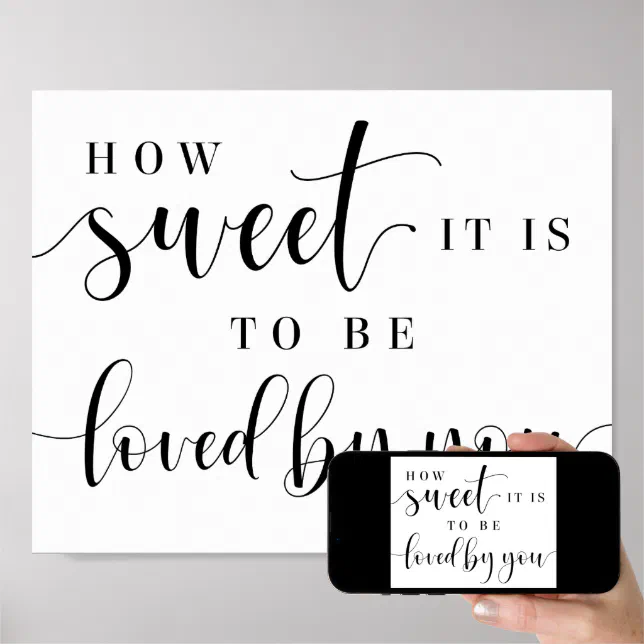 HOW
sweet IT IS
TO BE
loved by you
HOW
sweet IT IS
TO BE
loved by you